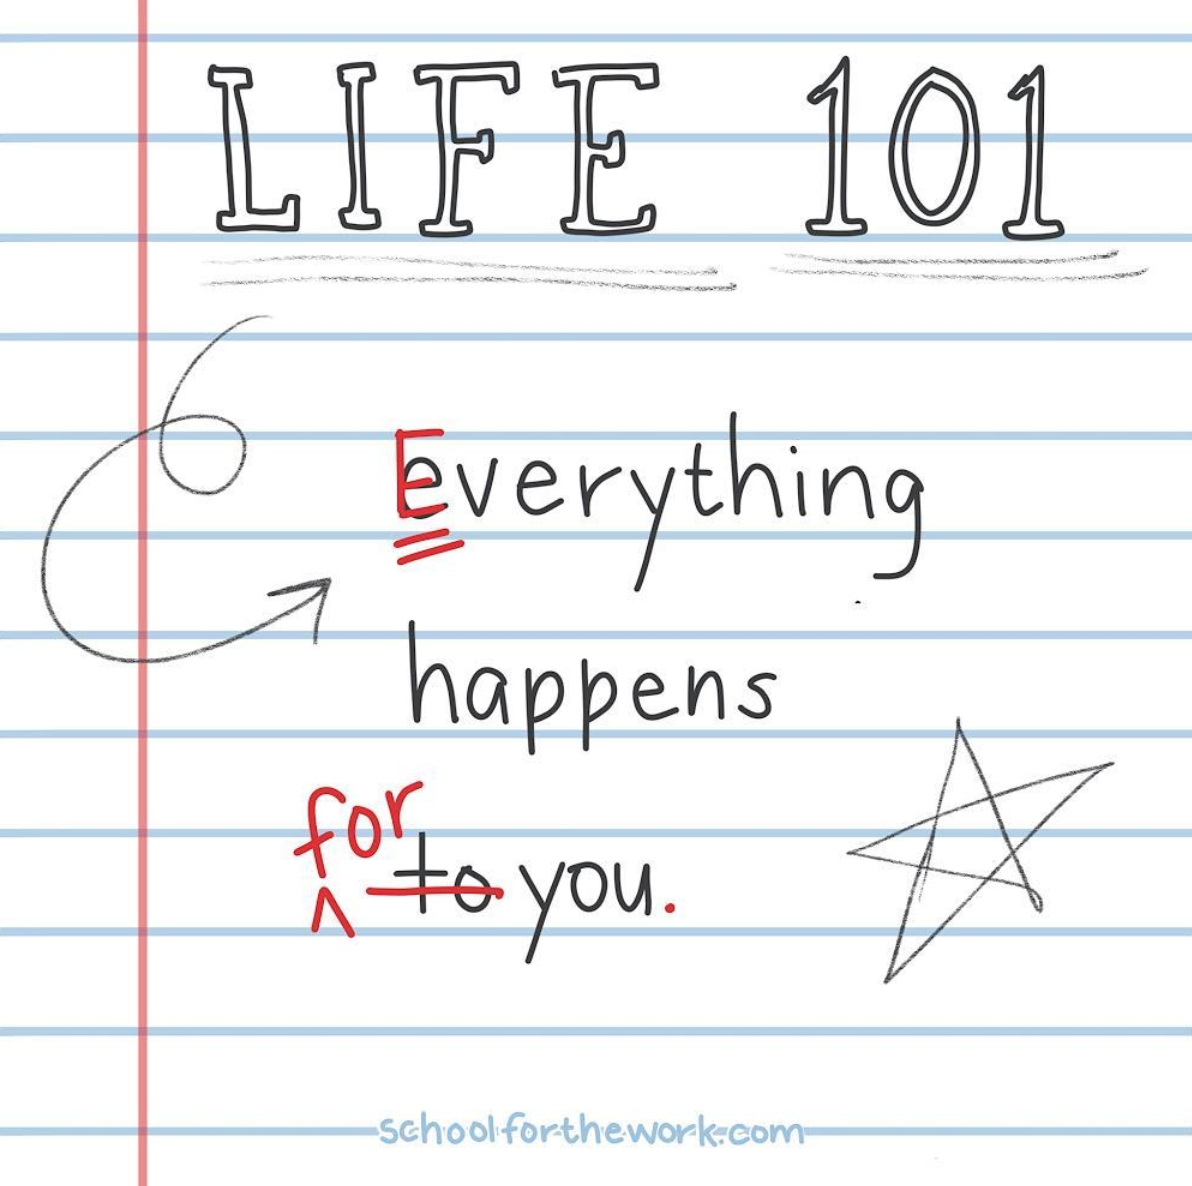 LIFE 101
Everything
happens
for
to you.
schoolforthework.com